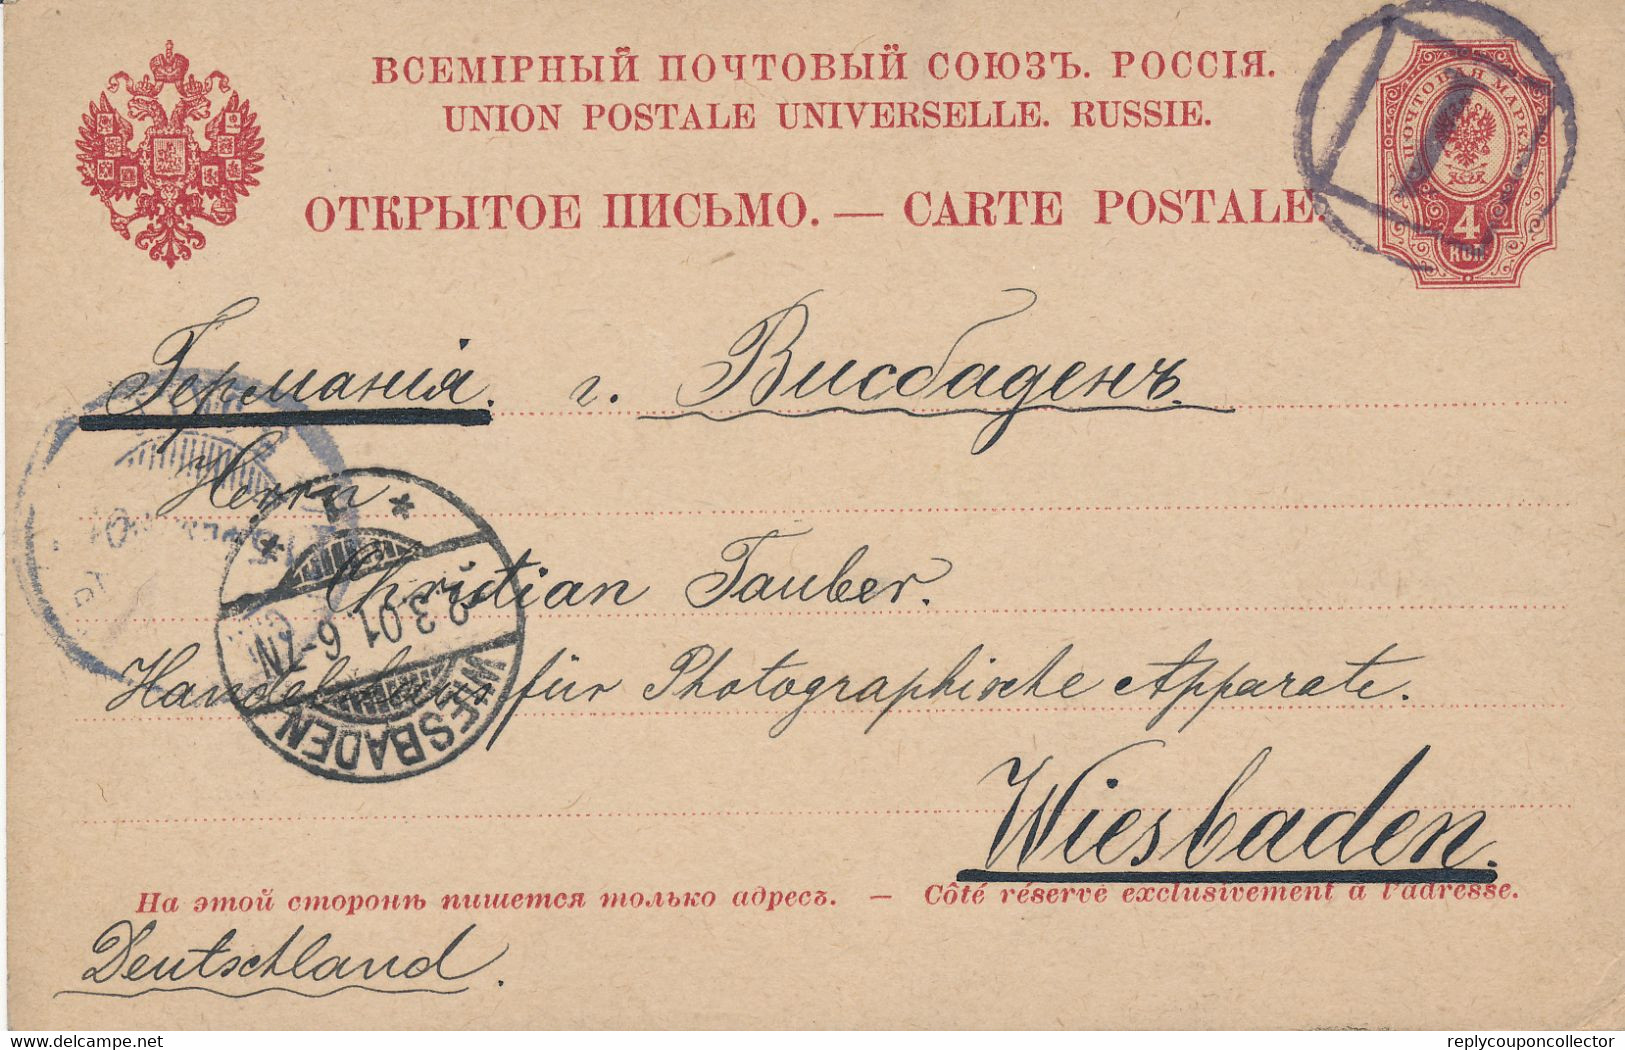 ВСЕМІРНЫЙ ПОЧТОВЫЙ СОЮЗЪ. РОССІЯ.
UNION POSTALE UNIVERSELLE. RUSSIE.
ОТКРЫТОЕ ПИСЬМО. — CARTE POSTALE.
ПОЧТОВАЯ МАРКА
4
КОП
Германія. г. Висбаденъ.
Herrn
Christian Tauber.
Handelshaus für Photographische Apparate.
Wiesbaden.
1
* *
9.3.01 6-7N
WIESBADEN
На этой сторонѣ пишется только адресъ. — Côté réservé exclusivement à l'adresse.
Deutschland.
delcampe.net
replycouponcollector